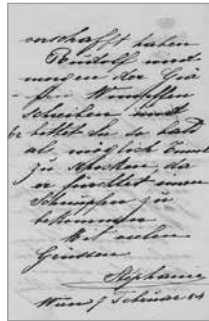 verschafft haben
Rudolf und
der Grä
fin Wimpffen
schreiben und
bittet Sie so bald
als möglich
zu schicken, da
er fürchtet einen
Schnupfen zu
bekommen
Mit vielen
Grüssen
Stéphanie
Wien 9 Februar 84